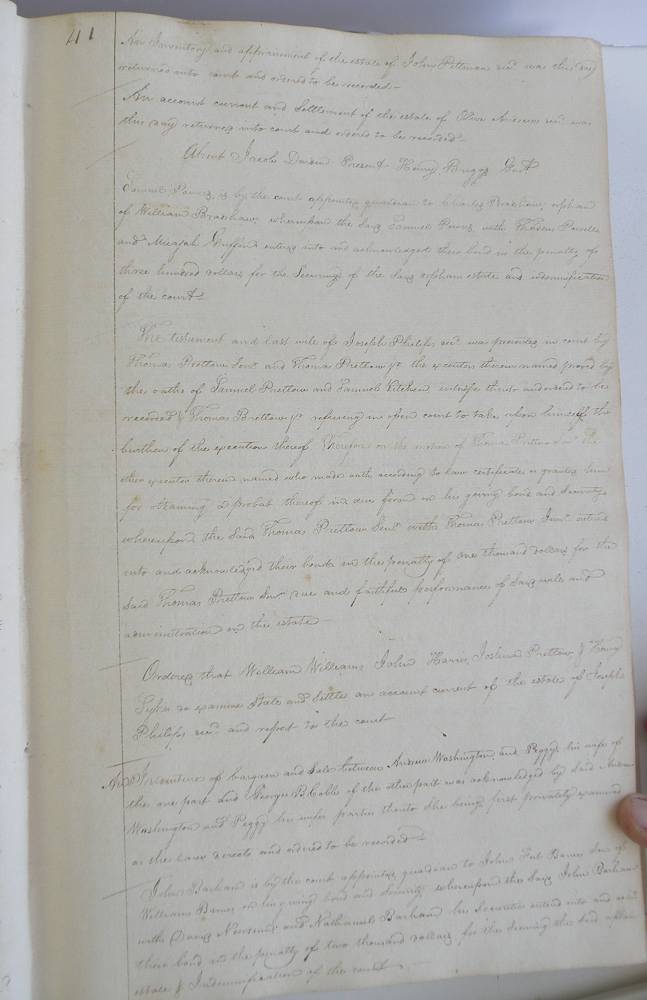 41
An Inventory and appraisment of the estate of John Pittman decd. was this day
returned into court and ordered to be recorded
An account current and Settlement of the estate of Olive Andrews decd. was
this day returned into court and ordered to be recorded
Absent Jacob Present Henry Briggs Gent
Samuel is by the court appointed guardian to Charles Bradshaw, orphan
of William Bradshaw, whereupon the said Samuel with
and Micajah Griffin entered into and acknowledged their bond in the penalty of
three hundred dollars for the Securing of the said orphans estate and indemnification
of the court
The testament and last will of Joseph Philips decd. was presented in court by
Thomas Pretlow Senr and Thomas Pretlow Jr. the executors therein named proved by
the oaths of Samuel Pretlow and Samuel Kitchen witnesses thereto and ordered to be
recorded & Thomas Pretlow Jr. refusing in open court to take upon himself the
burthen of the execution thereof Therefore on the motion of Thomas Pretlow Senr the
other executor therein named who made oath according to law certificate is granted him
for obtaining a probat thereof in due form on his giving bond and Security
whereupon the said Thomas Pretlow Senr with Thomas Pretlow Junr entered
into and acknowledged their bond in the penalty of one thousand dollars for the
said Thomas Pretlow Senr due and faithful performance of said will and
administration on the estate
Ordered that William Williams, John Harris, Joshua Pretlow & Henry
Sykes do examine State and Settle an account current of the estate of Joseph
Philips decd. and report to the court
An Indenture of bargain and Sale between Andrew Washington, and Peggy his wife of
the one part and George B Cable of the other part was acknowledged by said Andrew
Washington and Peggy his wife parties thereto she being first privately examined
as the law directs and ordered to be recorded
John Barham is by the court appointed guardian to John Barnes Son of
William Barnes on his giving bond and Security whereupon the said John Barham
with David Newsum and Nathaniel Barham his Securities entered into and
their bond in the penalty of two thousand dollars for the securing the said orphans
estate & Indemnification of the court